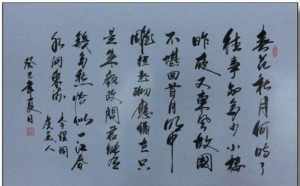 春花秋月何時了
往事知多少小樓
昨夜又東風故國
不堪回首月明中
雕栏玉砌應猶在只
是朱顏改問君能有
幾多愁恰似一江春
水向東流
李煜詞
虞美人
癸巳年夏日